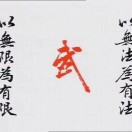 以無法為有法
武
以無限為有限